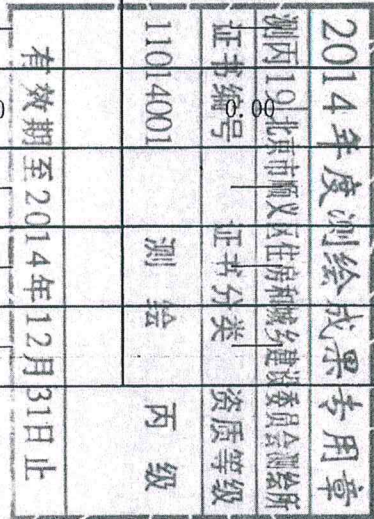 2014年度测绘成果专用章
测丙19 北京市顺义区住房和城乡建设委员会测绘所
证书编号 证书分类 资质等级
11014001 测绘 丙级
有效期至2014年12月31日止
0.00